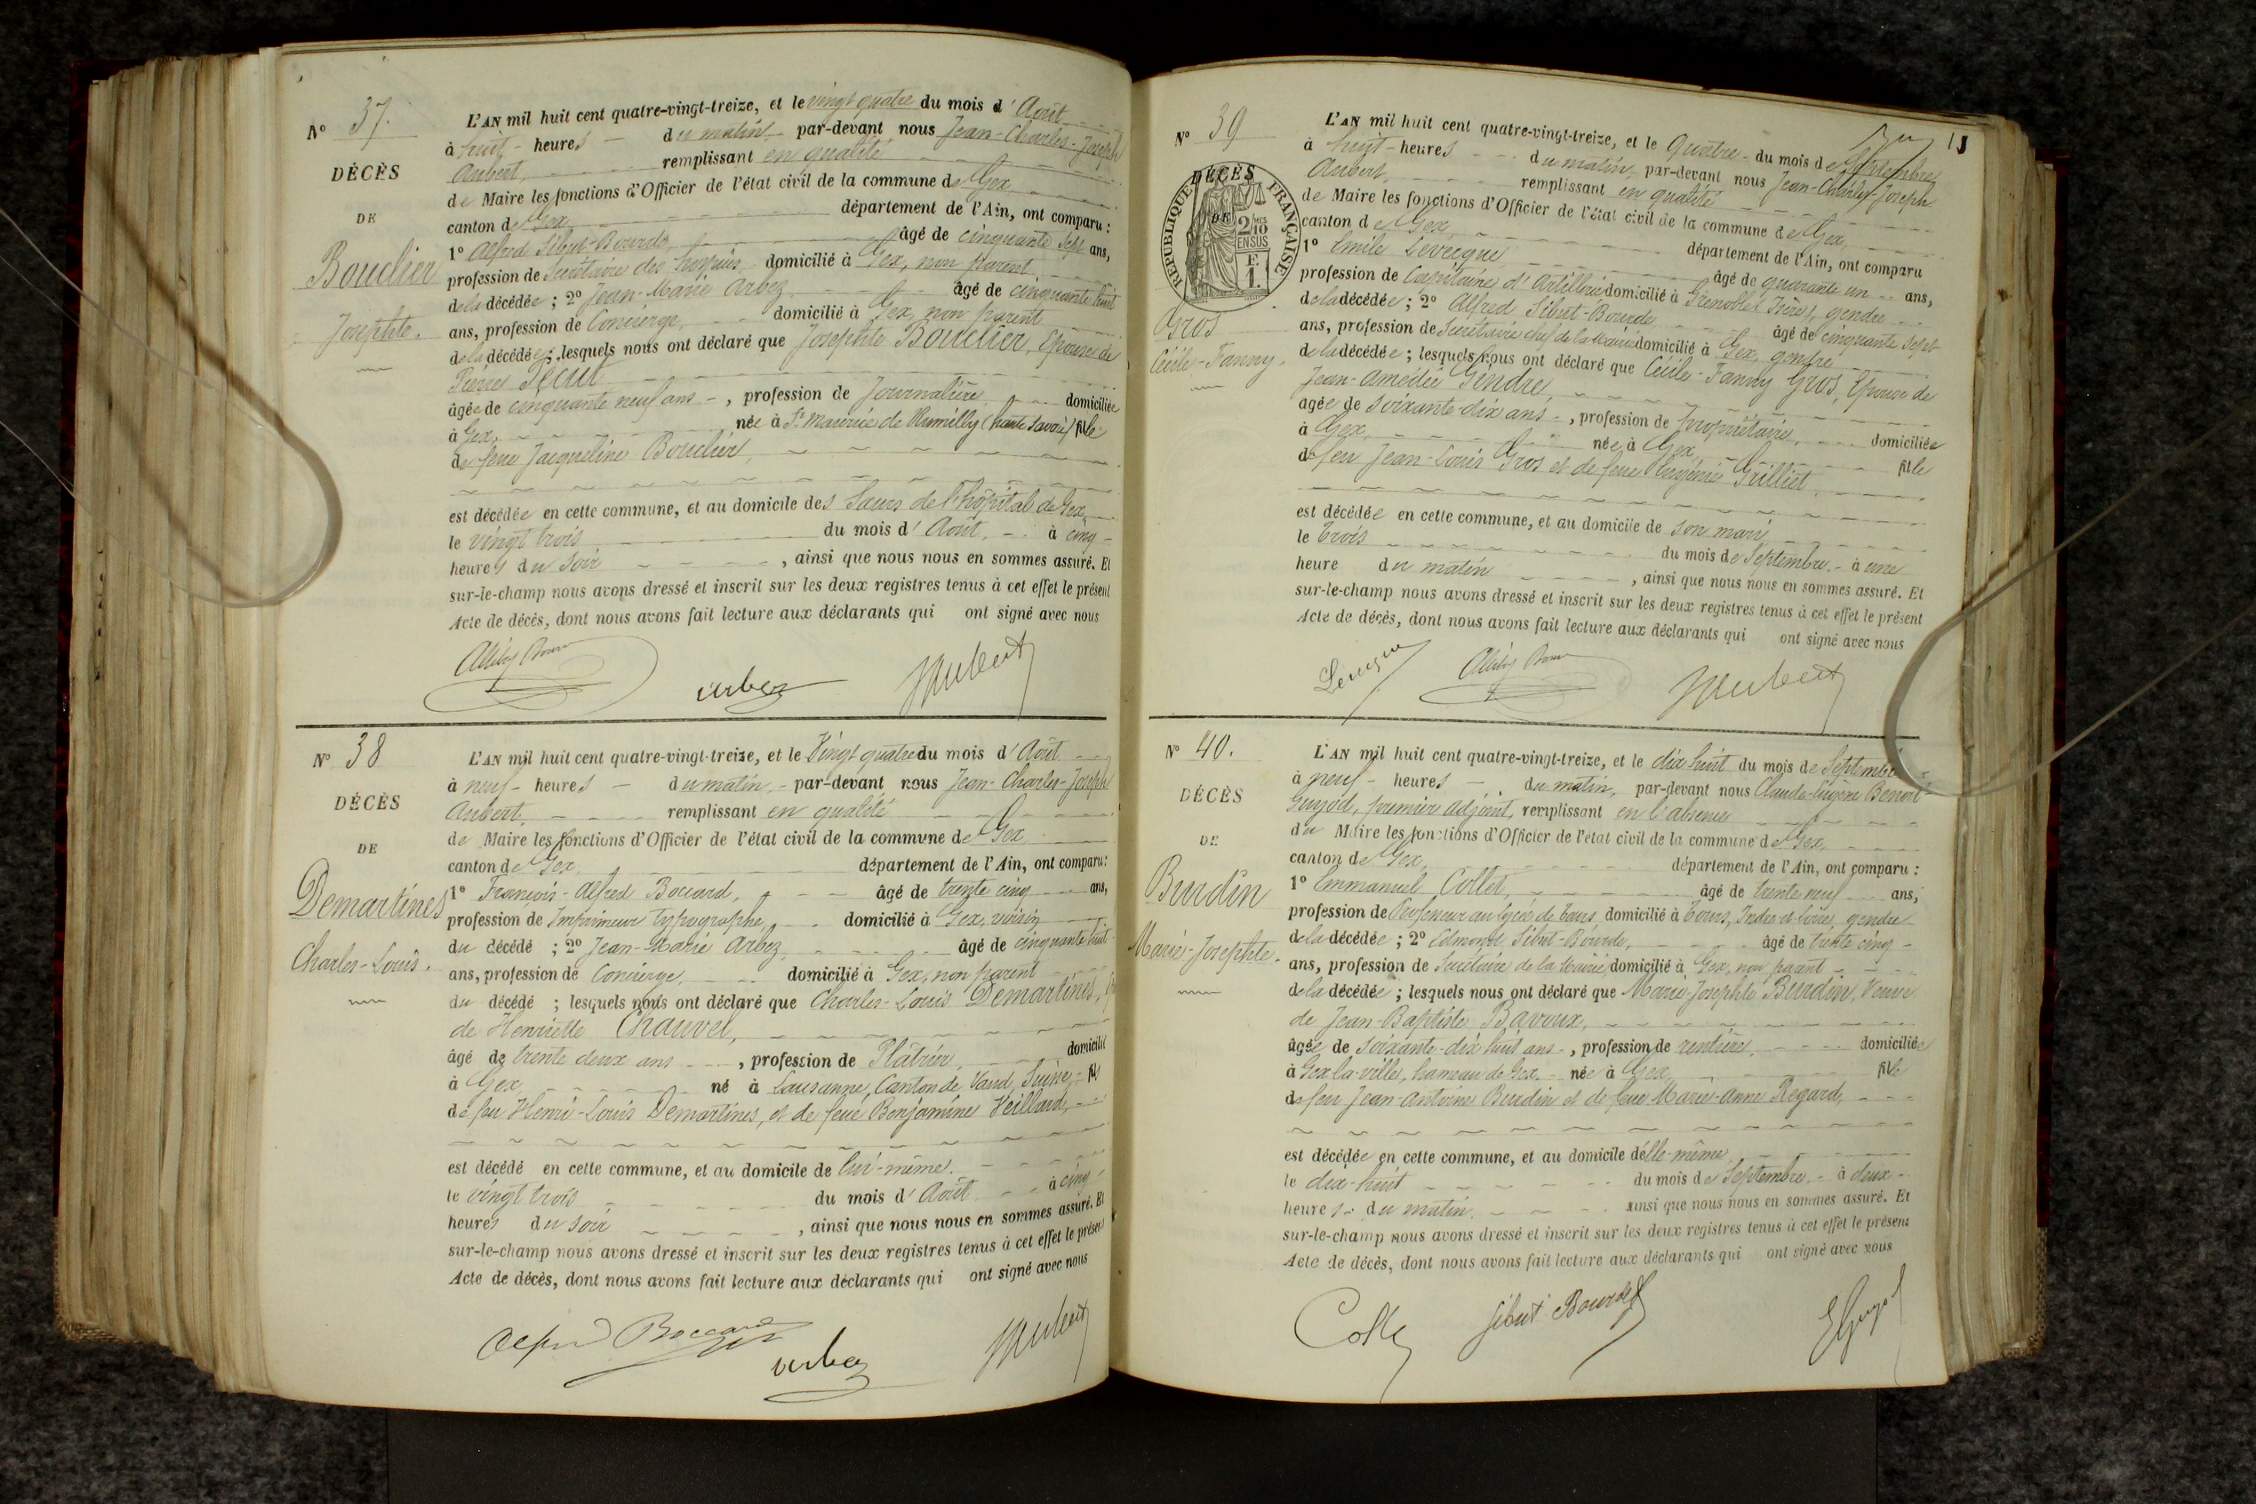 N° 37.
DÉCÈS
DE
Bouclier
Josephte.
L'AN mil huit cent quatre-vingt-treize, et le vingt quatre du mois d'Août
à huit heures du matin par-devant nous Jean-Charles-Joseph
Aubert, remplissant en qualité
de Maire les fonctions d'Officier de l'état civil de la commune de Gex
canton de Gex département de l'Ain, ont comparu :
1° Alfred Sibut-Bourde âgé de cinquante sept ans,
profession de Secrétaire des hospices domicilié à Gex, non parent
de la décédée ; 2° Jean-Marie Arbez âgé de cinquante huit
ans, profession de Concierge, domicilié à Gex, non parent
de la décédée ; lesquels nous ont déclaré que Josephte Bouclier, Epouse de
Pierre
âgée de cinquante neuf ans, profession de Journalière domiciliée
à Gex, née à St Maurice de Rumilly (haute Savoie) fille
de feue Jacqueline Bouclier,
est décédée en cette commune, et au domicile des Sœurs de l'hôpital de Gex,
le vingt trois du mois d'Août, à cinq
heures du soir, ainsi que nous nous en sommes assuré. Et
sur-le-champ nous avons dressé et inscrit sur les deux registres tenus à cet effet le présent
Acte de décès, dont nous avons fait lecture aux déclarants qui ont signé avec nous
Arbez JAubert
N° 38
DÉCÈS
DE
Demartines
Charles-Louis.
L'AN mil huit cent quatre-vingt-treize, et le Vingt quatre du mois d'Août
à neuf heures du matin, par-devant nous Jean-Charles-Joseph
Aubert, remplissant en qualité
de Maire les fonctions d'Officier de l'état civil de la commune de Gex
canton de Gex, département de l'Ain, ont comparu :
1° François-Alfred Boccard, âgé de trente cinq ans,
profession de Imprimeur typographe, domicilié à Gex, voisin
du décédé ; 2° Jean-Marie Arbez âgé de cinquante huit
ans, profession de Concierge, domicilié à Gex, non parent
du décédé ; lesquels nous ont déclaré que Charles-Louis Demartines,
de Henriette Chauvet,
âgé de trente deux ans, profession de Plâtrier, domicilié
à Gex né à Lausanne, Canton de Vaud, Suisse, fils
de feu Henri-Louis Demartines, et de feue Benjamine Veillard,
est décédé en cette commune, et au domicile de lui-même.
le vingt trois du mois d'Août à cinq
heures du soir, ainsi que nous nous en sommes assuré. Et
sur-le-champ nous avons dressé et inscrit sur les deux registres tenus à cet effet le présent
Acte de décès, dont nous avons fait lecture aux déclarants qui ont signé avec nous
Alfred Boccard Arbez JAubert
N° 39
DÉCÈS
DE
RÉPUBLIQUE FRANÇAISE
2/10 EN SUS
E. 1.
Gros
Cécile-Fanny.
L'AN mil huit cent quatre-vingt-treize, et le Quatre du mois de Septembre
à huit heures du matin, par-devant nous Jean-Charles-Joseph
Aubert, remplissant en qualité
de Maire les fonctions d'Officier de l'état civil de la commune de Gex,
canton de Gex, département de l'Ain, ont comparu
1° Emile Levecque âgé de quarante un ans,
profession de Capitaine d'Artillerie domicilié à Grenoble, Isère, gendre
de la décédée ; 2° Alfred Sibut-Bourde âgé de cinquante sept
ans, profession de Secrétaire chef de la Mairie domicilié à Gex, gendre
de la décédée ; lesquels nous ont déclaré que Cécile-Fanny Gros, Epouse de
Jean-Amédée Gendre,
agée de soixante-dix ans, profession de Propriétaire, domiciliée
à Gex, née à Gex fille
de feu Jean-Louis Gros et de feue Eugénie Grilliet
est décédée en cette commune, et au domicile de son mari
le trois du mois de Septembre à une
heure du matin, ainsi que nous nous en sommes assuré. Et
sur-le-champ nous avons dressé et inscrit sur les deux registres tenus à cet effet le présent
Acte de décès, dont nous avons fait lecture aux déclarants qui ont signé avec nous
JAubert
N° 40.
DÉCÈS
DE
Burdin
Marie-Josephte.
L'AN mil huit cent quatre-vingt-treize, et le dix huit du mois de Septembre
à neuf heures du matin, par-devant nous Claude-Eugène Benoit
Guyod, premier adjoint, remplissant en l'absence
du Maire les fonctions d'Officier de l'état civil de la commune de Gex,
canton de Gex, département de l'Ain, ont comparu :
1° Emmanuel Collet, âgé de trente neuf ans,
profession de Professeur au lycée de Tours, domicilié à Tours, Indre et Loire, gendre
de la décédée ; 2° Edmond Sibut-Bourde, âgé de trente cinq
ans, profession de Secrétaire de la Mairie domicilié à Gex, non parent
de la décédée ; lesquels nous ont déclaré que Marie-Josephte Burdin, Veuve
de Jean-Baptiste Bavoux,
âgée de soixante-dix huit ans, profession de rentière, domiciliée
à Gex-la-ville, hameau de Gex née à Gex, fille
de feu Jean-Antoine Burdin et de feue Marie-Anne Regard,
est décédée en cette commune, et au domicile d'elle-même
le dix-huit du mois de Septembre à deux
heures du matin ainsi que nous nous en sommes assuré. Et
sur-le-champ nous avons dressé et inscrit sur les deux registres tenus à cet effet le présent
Acte de décès, dont nous avons fait lecture aux déclarants qui ont signé avec nous
Sibut Bourde EGuyod